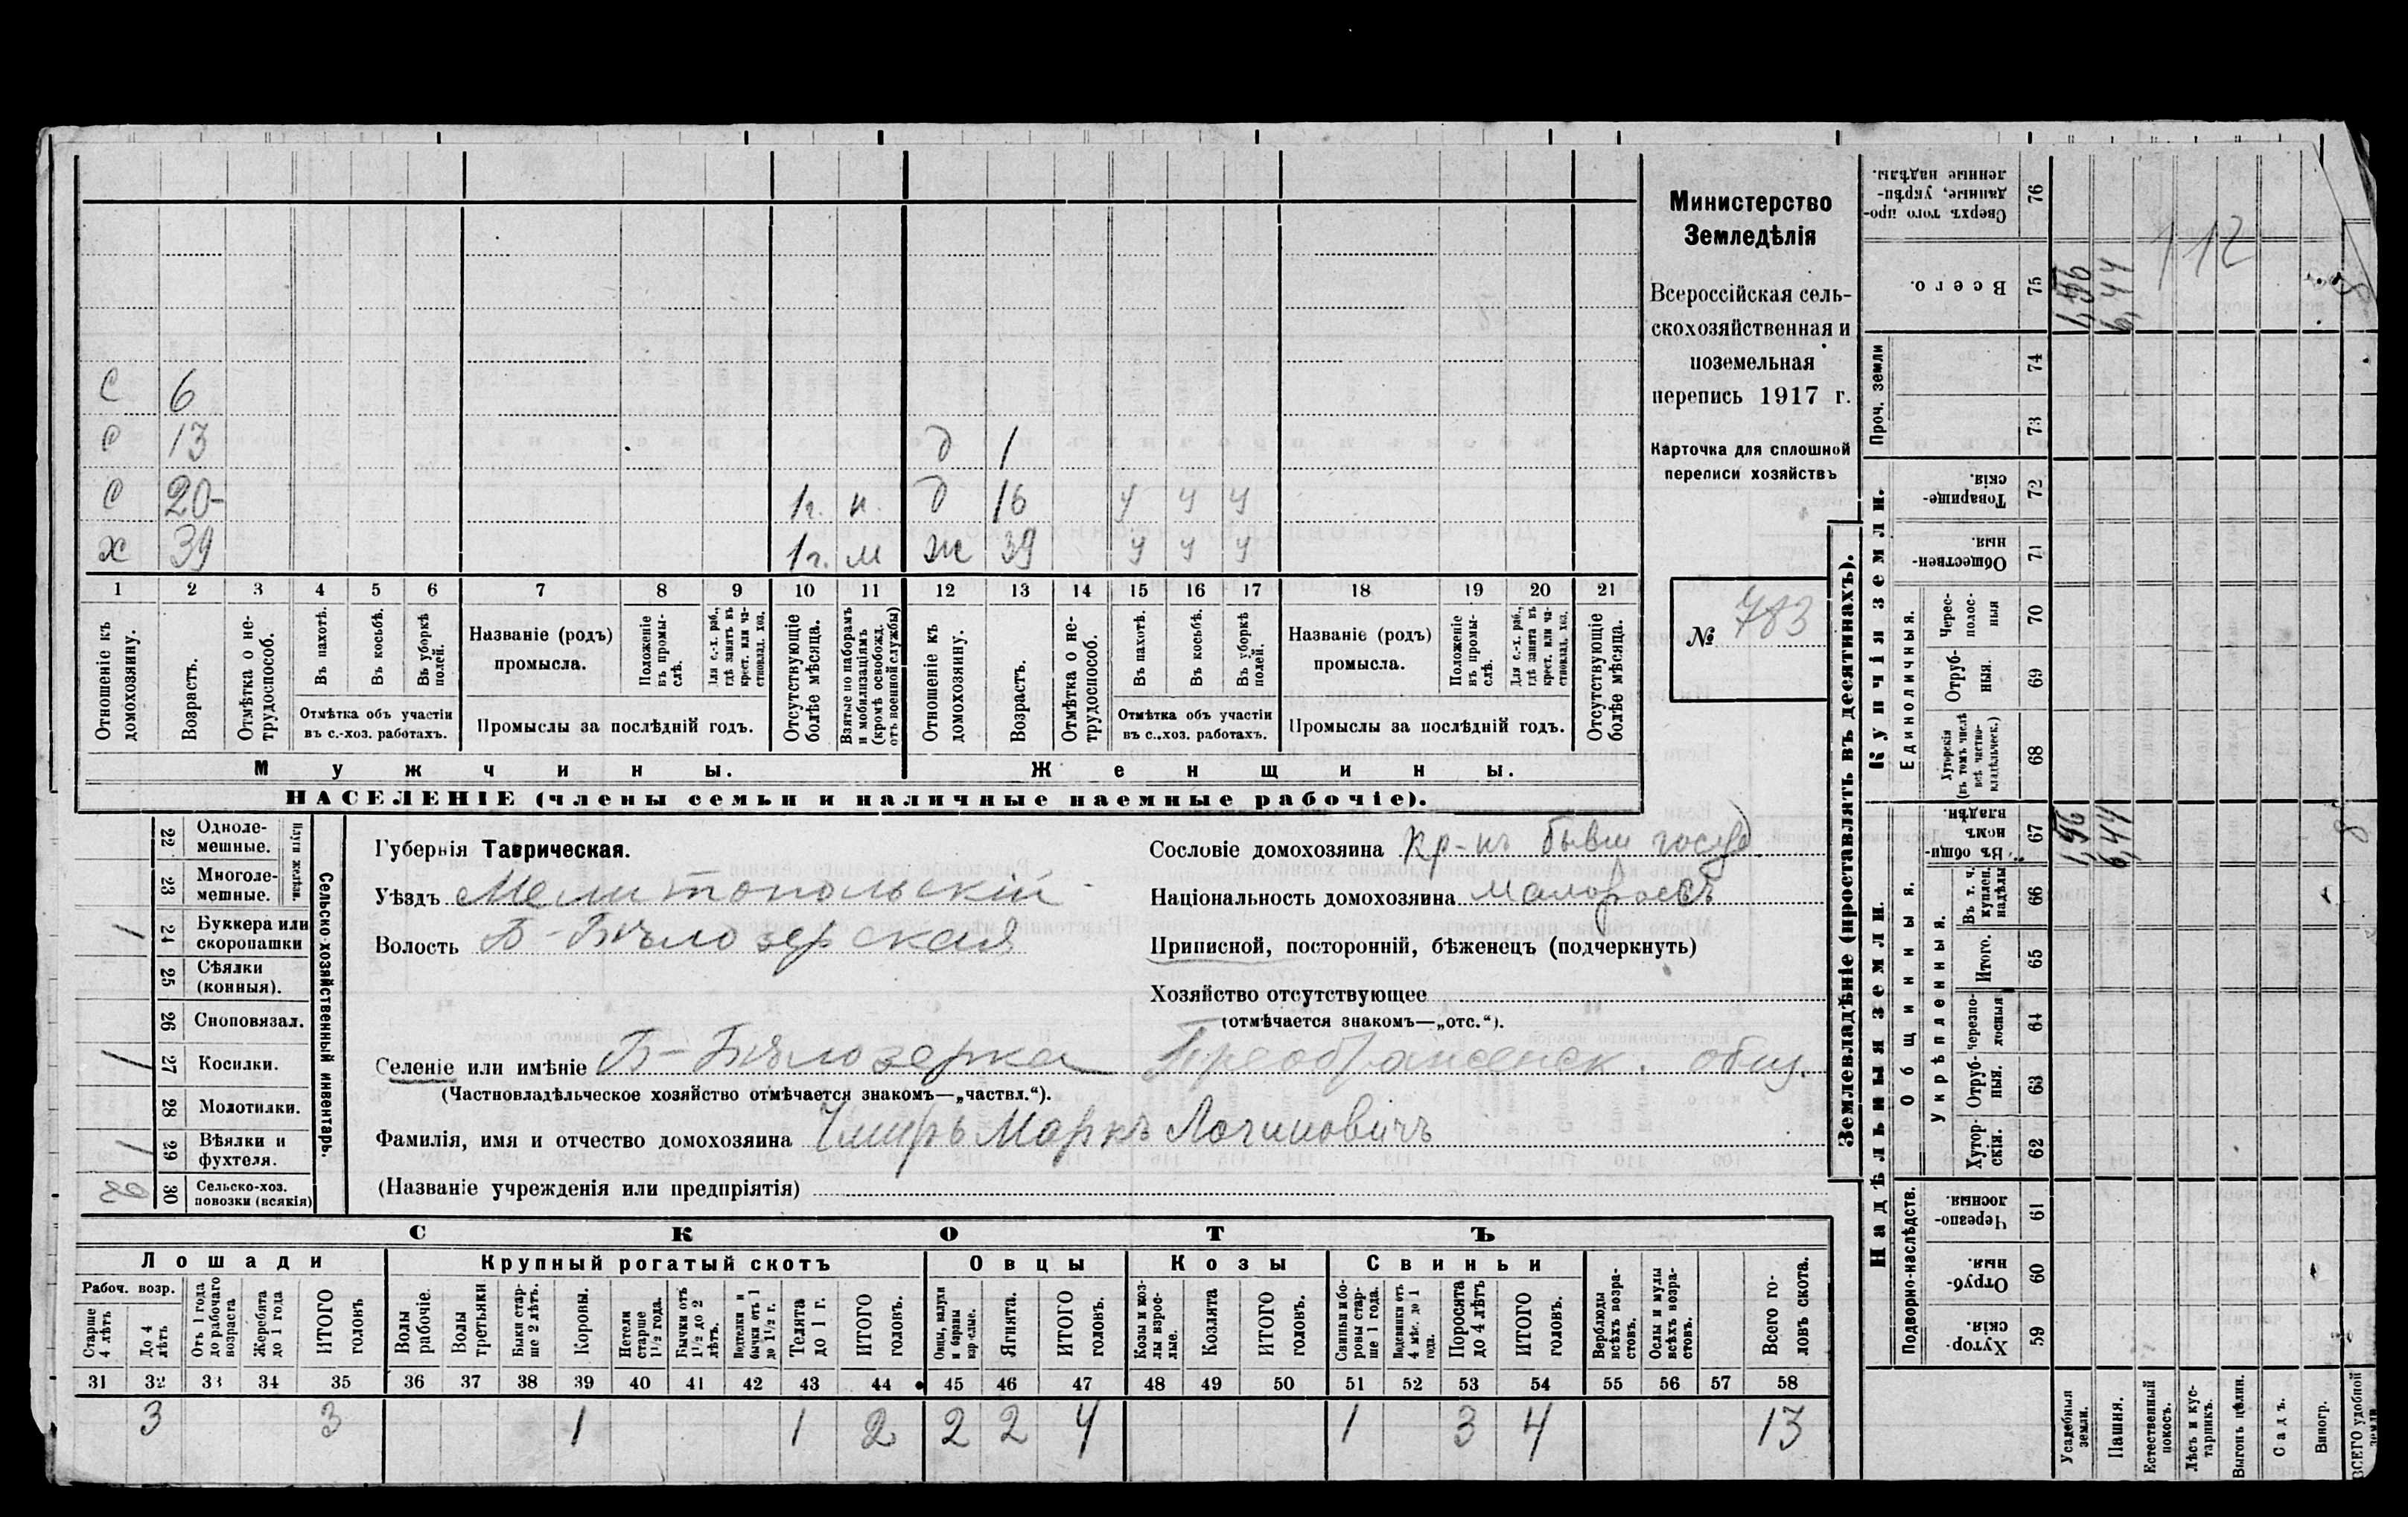 С 6
С 13 д 1
С 20- 1г. н. д 16 У У У
Х 39 1г. м Ж 39 У У У
1 2 3 4 5 6 7 8 9 10 11 12 13 14 15 16 17 18 19 20 21
Отношеніе къ домохозяину.
Возрастъ.
Отмѣтка о не-трудоспособ.
Въ пахотѣ.
Въ косьбѣ.
Въ уборкѣ полей.
Отмѣтка объ участіи
въ с.-хоз. работахъ.
Названіе (родъ)
промысла.
Положеніе въ промы-слѣ.
Для с.-х. раб., гдѣ занятъ въ крест. или ча-стновлад. хоз.
Промыслы за послѣдній годъ.
Отсутствующіе болѣе мѣсяца.
Взятые по наборамъ и мобилизаціямъ (кромѣ освобожд. отъ военной службы)
Отношеніе къ домохозяину.
Возрастъ.
Отмѣтка о не-трудоспособ.
Въ пахотѣ.
Въ косьбѣ.
Въ уборкѣ полей.
Отмѣтка объ участіи
въ с.-хоз. работахъ.
Названіе (родъ)
промысла.
Положеніе въ промы-слѣ.
Для с.-х. раб., гдѣ занята въ крест. или ча-стновлад. хоз.
Промыслы за послѣдній годъ.
Отсутствующіе болѣе мѣсяца.
Мужчины. Женщины.
НАСЕЛЕНІЕ (члены семьи и наличные наемные рабочіе).
Министерство
Земледѣлія
Всероссійская сель-
скохозяйственная и
поземельная
перепись 1917 г.
Карточка для сплошной
переписи хозяйствъ
№ 783
Сельско-хозяйственный инвентарь.
Плуги желѣзн.
22 Одноле-мешные.
23 Многоле-мешные.
1 24 Буккера или скоропашки
25 Сѣялки (конныя).
26 Сноповязал.
1 27 Косилки.
28 Молотилки.
1 29 Вѣялки и фухтеля.
30 Сельско-хоз. повозки (всякія)
Губернія Таврическая.
Уѣздъ Мелитопольскій
Волость Б-Бѣлозерская
Сословіе домохозяина Кр-нъ бывш госуд
Національность домохозяина малороссъ
Приписной, посторонній, бѣженецъ (подчеркнуть)
Хозяйство отсутствующее
(отмѣчается знакомъ—„отс.“).
Селеніе или имѣніе Б-Бѣлозерка Преображенск. общ.
(Частновладѣльческое хозяйство отмѣчается знакомъ—„частвл.“).
Фамилія, имя и отчество домохозяина Чмирь Маркъ Логиновичъ
(Названіе учрежденія или предпріятія)
СКОТЪ
Лошади Крупный рогатый скотъ Овцы Козы Свиньи
Рабоч. возр.
Старше 4 лѣтъ
До 4 лѣтъ
Отъ 1 года до рабочаго возраста
Жеребята до 1 года
ИТОГО головъ
Волы рабочіе.
Волы третьяки
Быки стар-ше 2 лѣтъ.
Коровы.
Нетели старше 1½ года.
Бычки отъ 1½ до 2 лѣтъ.
бычки отъ 1 до 1½ г.
Телята до 1 г.
ИТОГО головъ.
Овцы, валухи и бараны взрослые.
Ягнята.
ИТОГО головъ.
Козы и коз-лы взрос-лые.
Козлята
ИТОГО головъ.
Свиньи и бо-ровы стар-ше 1 года.
Подсвинки отъ 4 мѣс. до 1 года.
Поросята до 4 лѣтъ
ИТОГО головъ.
Верблюды всѣхъ возра-стовъ.
Ослы и мулы всѣхъ возра-стовъ.
Всего го-ловъ скота.
31 32 33 34 35 36 37 38 39 40 41 42 43 44 45 46 47 48 49 50 51 52 53 54 55 56 57 58
3 3 1 1 2 2 2 4 1 3 4 13
Землевладѣніе (проставлять въ десятинахъ).
Купчія земли.
Надѣльныя земли.
Сверхъ того про-данные, укрѣп-ленные надѣлы. 76
Всего. 75 1,56 6,44
112
Проч. земли 74 73
Товарище-скія. 72
Обществен-ныя. 71
Единоличныя.
Черес-полос-ныя 70
Отруб-ныя. 69
Хуторскія (въ томъ числѣ всѣ частно-владѣльческ.) 68
Общинныя.
Въ общин-номъ владѣн. 67 1,56 6,44 8
Укрѣпленныя.
Въ т. ч. куплен. надѣлы 66
Итого. 65
Черезпо-лосныя 64
Отруб-ныя. 63
Хутор-скія. 62
Подворно-наслѣдств.
Черезпо-лосныя. 61
Отруб-ныя. 60
Хутор-скія. 59
Усадебныя земли.
Пашня.
Естественный покосъ.
Лѣсъ и кус-тарникъ.
Выгонъ цѣлин.
Садъ.
Виногр.
ВСЕГО удобной земли